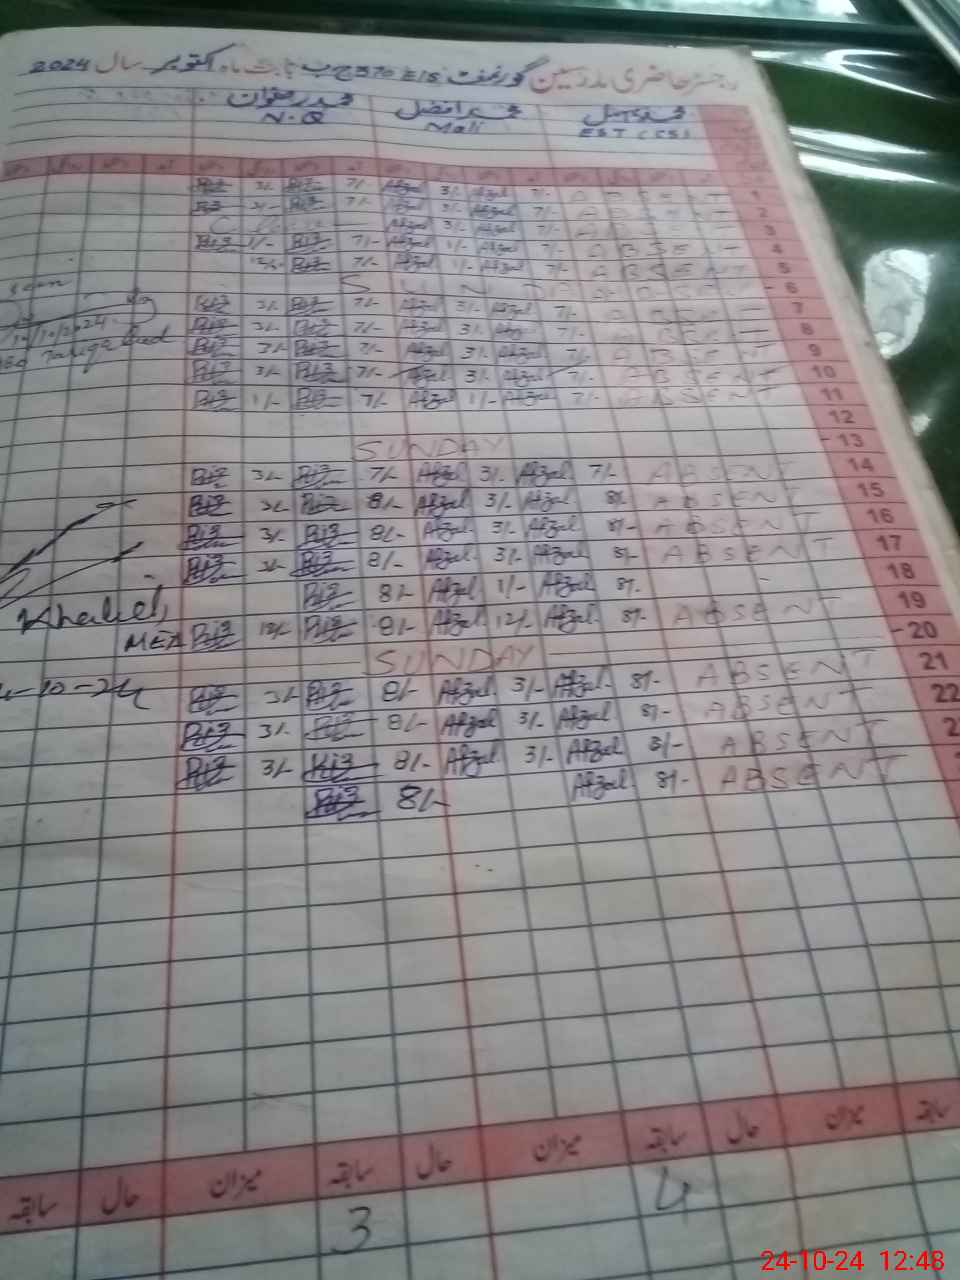 رجسٹر حاضری مدرسین گورنمنٹ E/S 570 ج ب بابت ماہ اکتوبر سال 2024
محمد افضل محمد رضوان
EST (CS) Mali N.Q
1 ABSENT 7/- Afzal 3/- Afzal 7/- Riz 3/- Riz
2 ABSENT 7/- Afzal 3/- Afzal 7/- Riz 3/- Riz
3 ABSENT 7/- Afzal 3/- Afzal
4 ABSENT 7/- Afzal 1/- Afzal 7/- Riz 1/- Riz
5 ABSENT 7/- Afzal 1/- Afzal 7/- Riz 12/-
6 SUNDAY
7 7/- Afzal 3/- Afzal 7/- Riz 3/- Riz
8 ABSENT 7/- Afzal 3/- Afzal 7/- Riz 3/- Riz
9 ABSENT 7/- Afzal 3/- Afzal 7/- Riz 3/- Riz
10 ABSENT 7/- Afzal 3/- Afzal 7/- Riz 3/- Riz
11 ABSENT 7/- Afzal 1/- Afzal 7/- Riz 1/- Riz
12
13 SUNDAY
14 ABSENT 7/- Afzal 3/- Afzal 7/- Riz 3/- Riz
15 ABSENT 8/- Afzal 3/- Afzal 8/- Riz 3/- Riz
16 ABSENT 8/- Afzal 3/- Afzal 8/- Riz 3/- Riz
17 ABSENT 8/- Afzal 3/- Afzal 8/- Riz 3/- Riz
18 8/- Afzal 1/- Afzal 8/- Riz
19 ABSENT 8/- Afzal 12/- Afzal 8/- Riz 12/- Riz
20 SUNDAY
21 ABSENT 8/- Afzal 3/- Afzal 8/- Riz 3/- Riz
22 ABSENT 8/- Afzal 3/- Afzal 8/- Riz 3/- Riz
ABSENT 8/- Afzal 3/- Afzal 8/- Riz 3/- Riz
ABSENT 8/- Afzal 8/- Riz
seen
10/2024
Khalid
MEA
-10-24
سابقہ میزان حال سابقہ میزان حال سابقہ میزان حال سابقہ
4 3
24-10-24 12:48